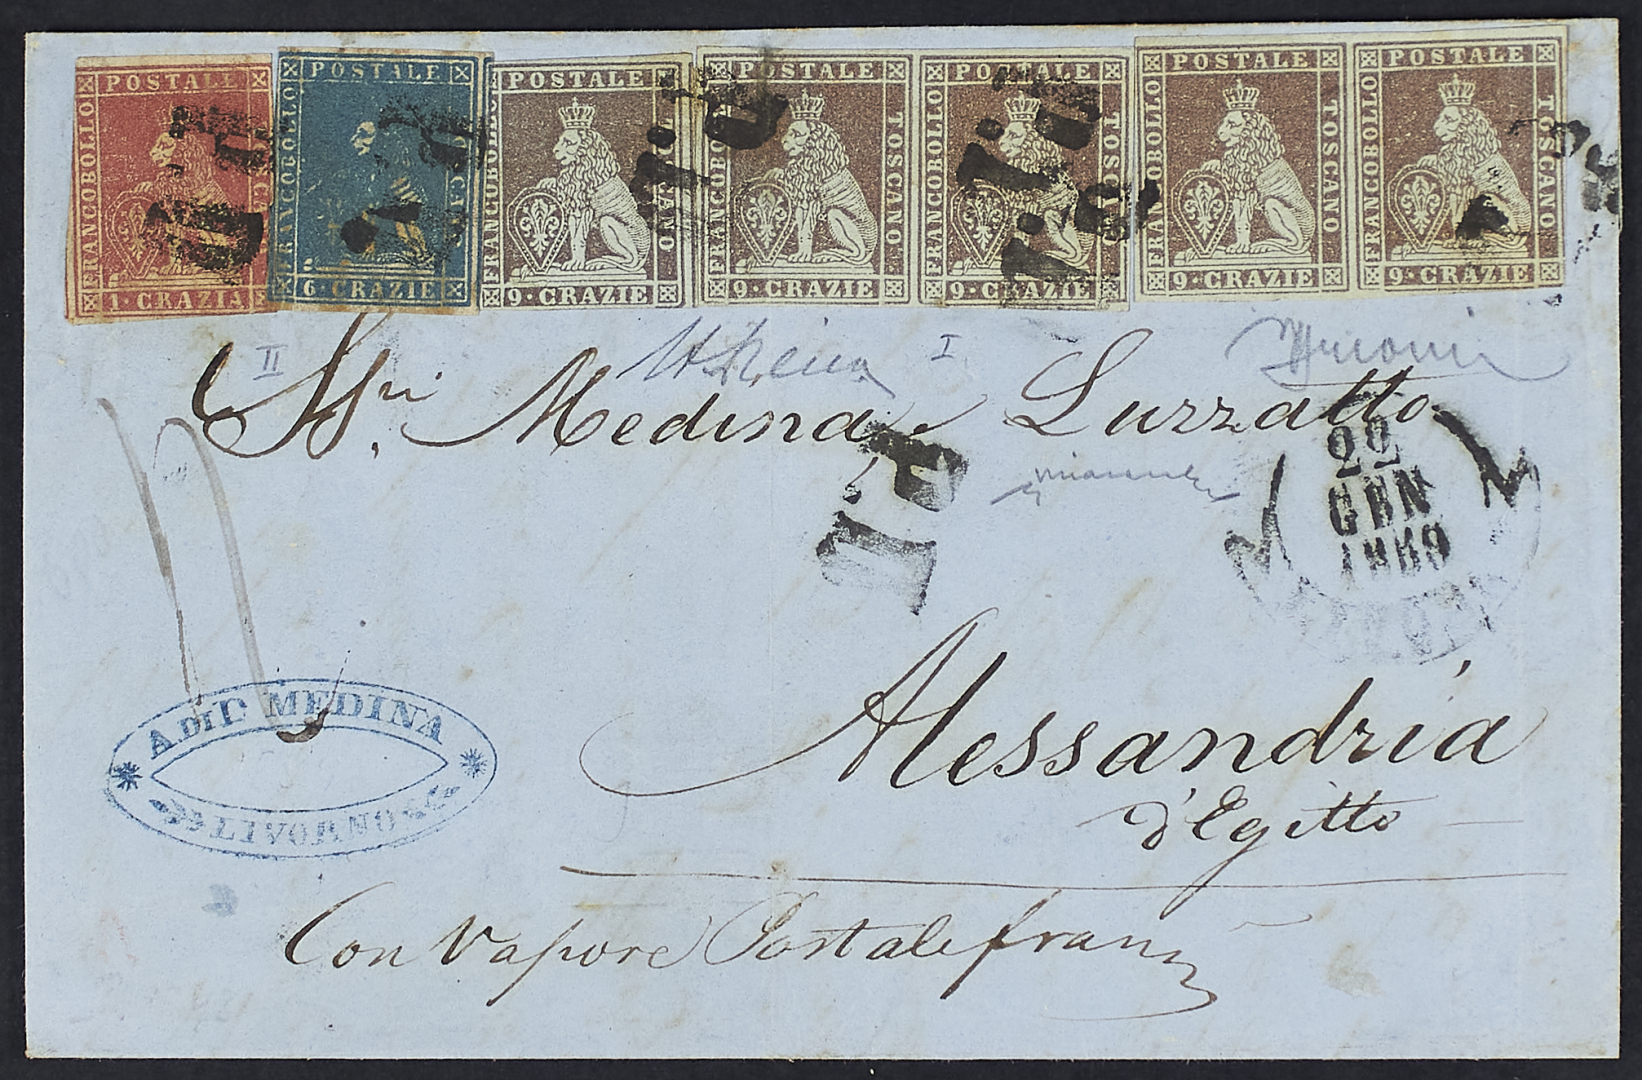 POSTALE FRANCOBOLLO 1 · CRAZIA
POSTALE FRANCOBOLLO 6 · CRAZIE
POSTALE FRANCOBOLLO TOSCANO 9 · CRAZIE
POSTALE FRANCOBOLLO TOSCANO 9 · CRAZIE
POSTALE FRANCOBOLLO TOSCANO 9 · CRAZIE
POSTALE FRANCOBOLLO TOSCANO 9 · CRAZIE
POSTALE FRANCOBOLLO TOSCANO 9 · CRAZIE
II
I
Medina e Luzzatto
P.D.
22
GEN
1859
Alessandria
d'Egitto
A DI D. MEDINA
LIVORNO
Con Vapore Postale